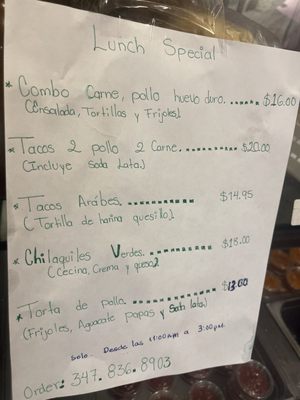 Lunch Special
* Combo Carne, pollo huevo duro. ..... $16.00
(Ensalada, Tortillas y Frijoles)
* Tacos 2 pollo 2 Carne. ......... $20.00
(Incluye Soda Lata.)
* Tacos Arábes. ......... $14.95
(Tortilla de harina quesillo)
* Chilaquiles Verdes. ......... $18.00
(Cecina, Crema y queso)
* Torta de pollo. ...........
(Frijoles, Aguacate papas y Soda lata)
Solo Desde las 11:00 am a 3:00 pm.
Order: 347. 836. 8903